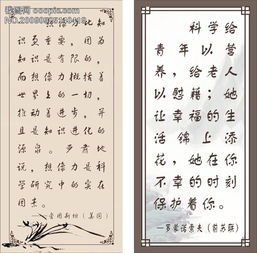 想像力比知
识更重要，因为
知识是有限的，
而想像力概括着
世界上的一切，
推动着进步，并
且是知识进化的
源泉。严肃地
说，想像力是科
学研究中的实在
因素。
——爱因斯坦（美国）
科学给
青年以营
养，给老人
以慰藉；她
让幸福的生
活锦上添
花，她在你
不幸的时刻
保护着你。
—罗蒙诺索夫（前苏联）